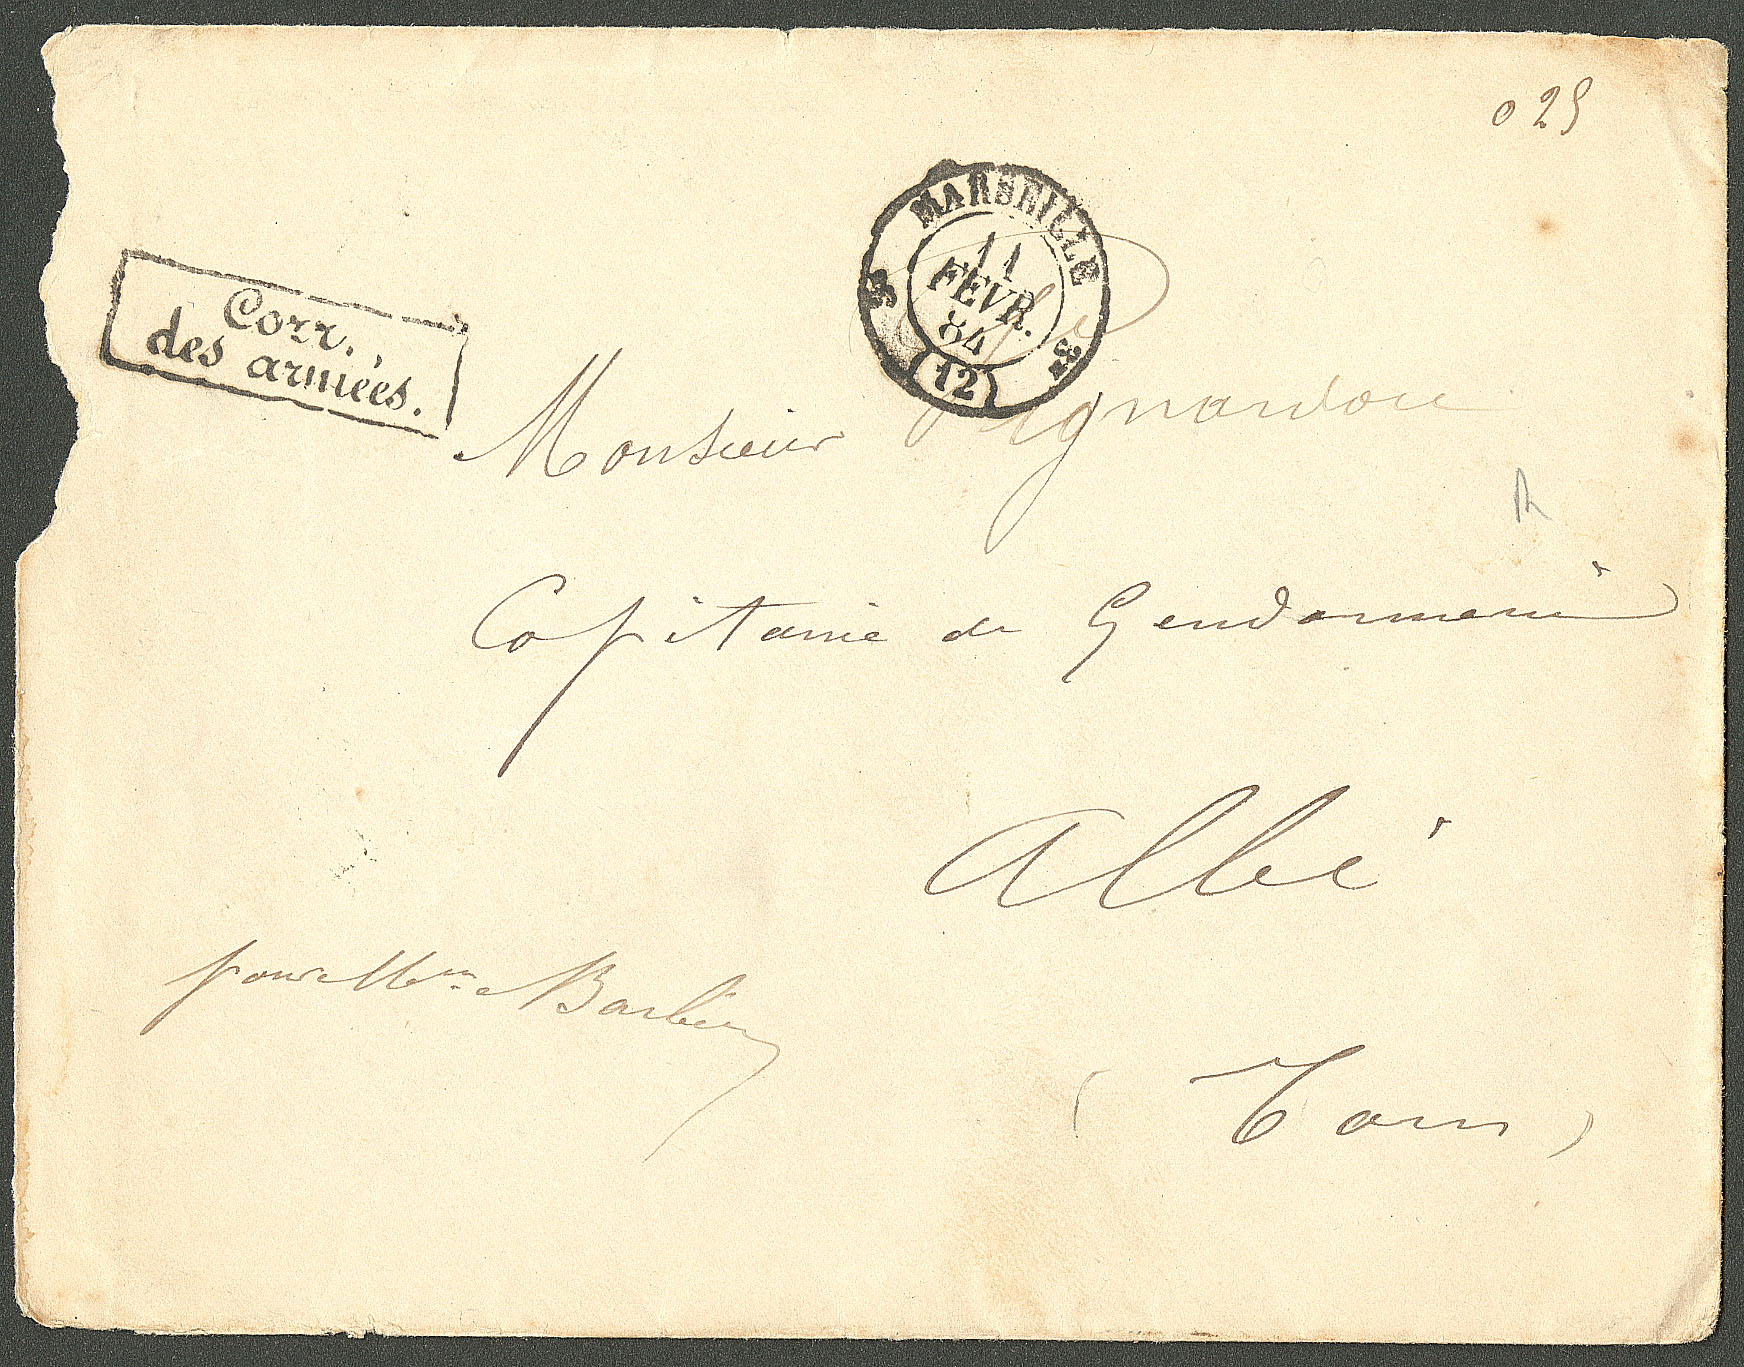 025
MARSEILLE
11
FEVR.
84
(12)
Corr.
des armées.
Monsieur
Capitaine de Gendarmerie
Albi
pour Mme Barbier
(Tarn)